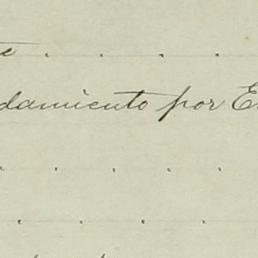 te . . . .
damiento por E
. . . . .
. . . .